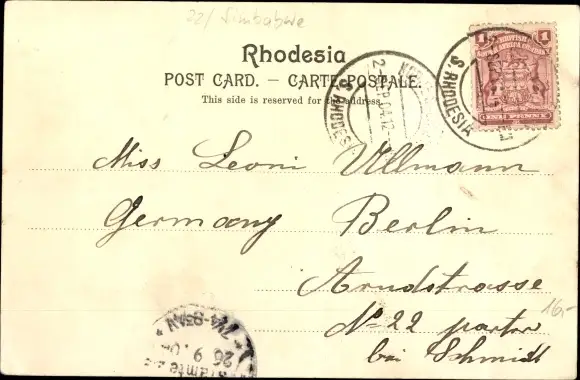 22/ Simbabwe
Rhodesia
POST CARD. – CARTE POSTALE.
This side is reserved for the address.
1 BRITISH 1
SOUTH AFRICA COMPANY
ONE PENNY
S. RHODESIA
S. RHODES
Miss Leoni Ullmann
Germany Berlin
Arndstrasse
No 22 parter
bei Schmidt
16,-
26 9 0